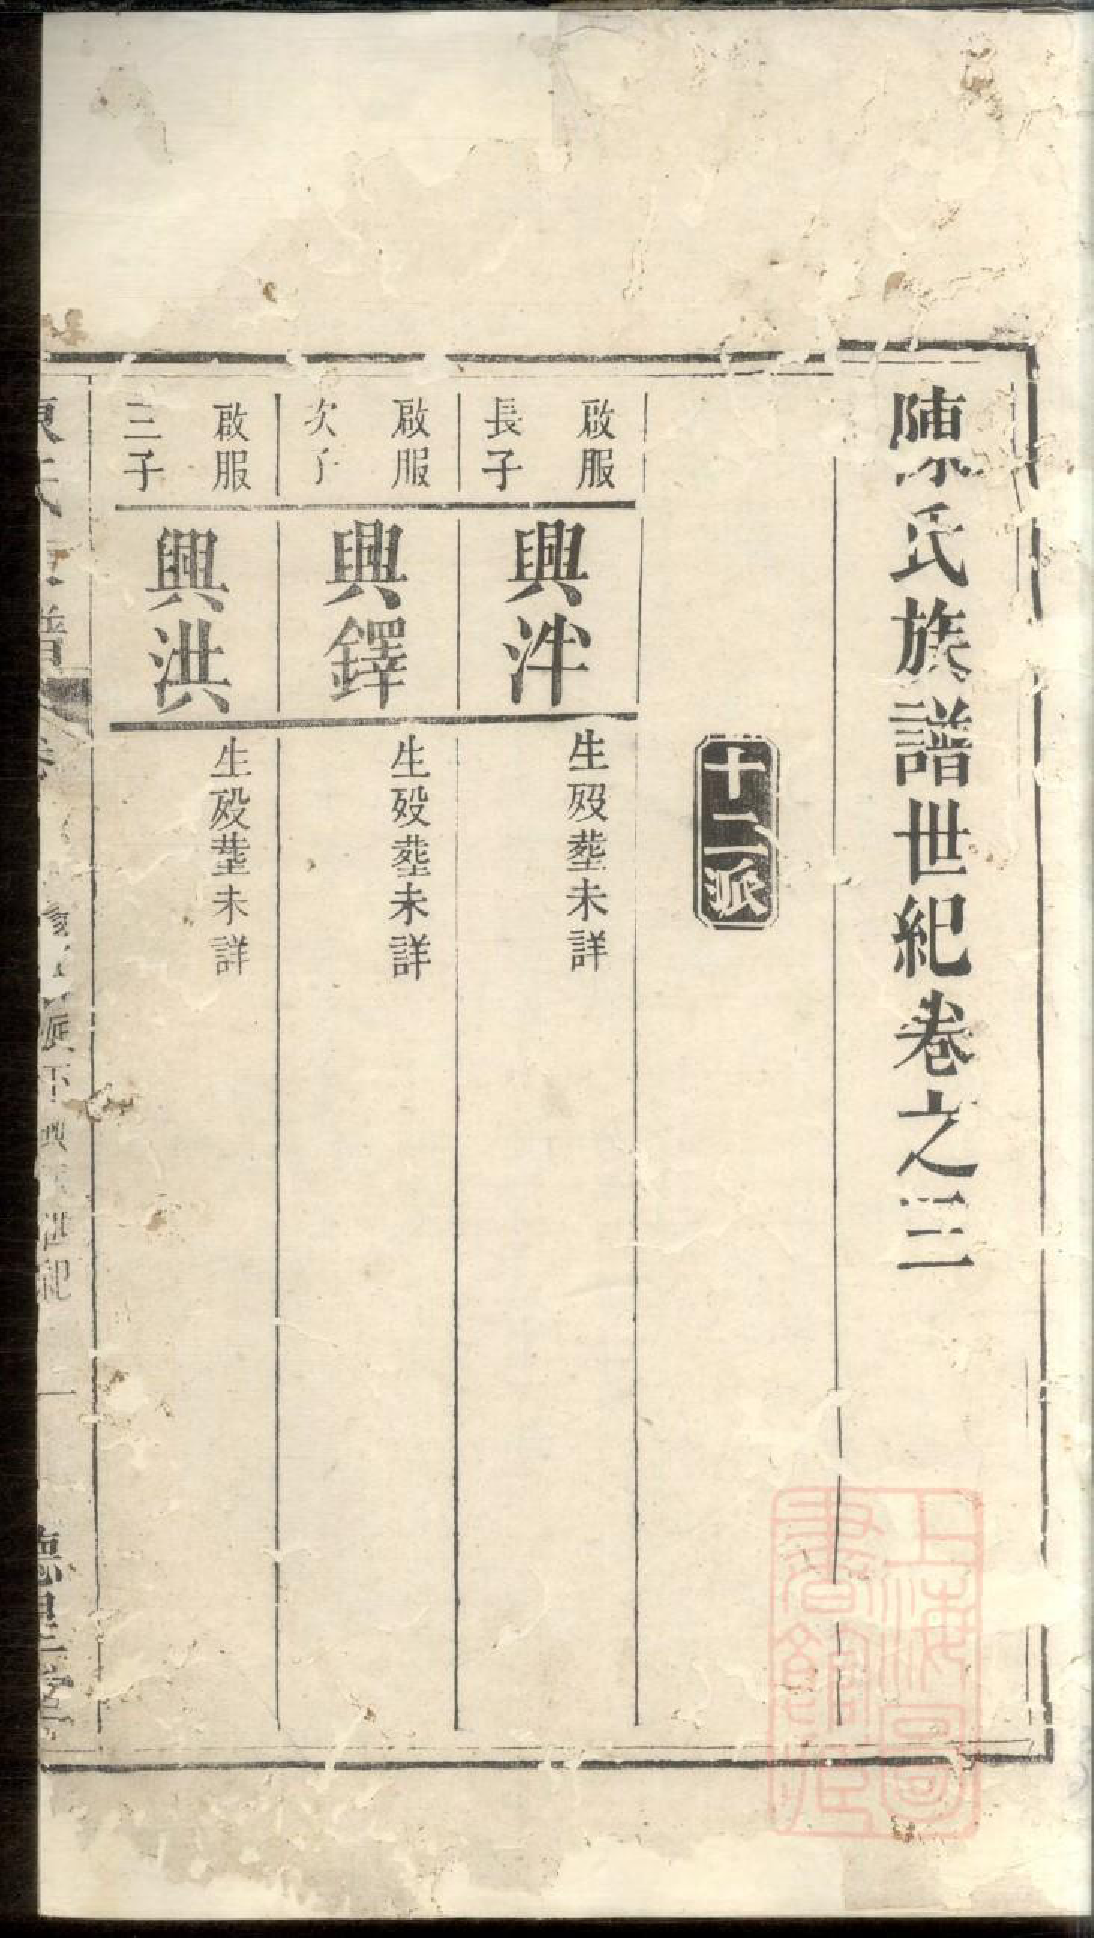 陳氏族譜世紀卷之三
十二派
啟服
長子
興泮
生殁塟未詳
啟服
次子
興鐸
生殁塟未詳
啟服
三子
興洪
生殁塟未詳
上海圖
書館藏